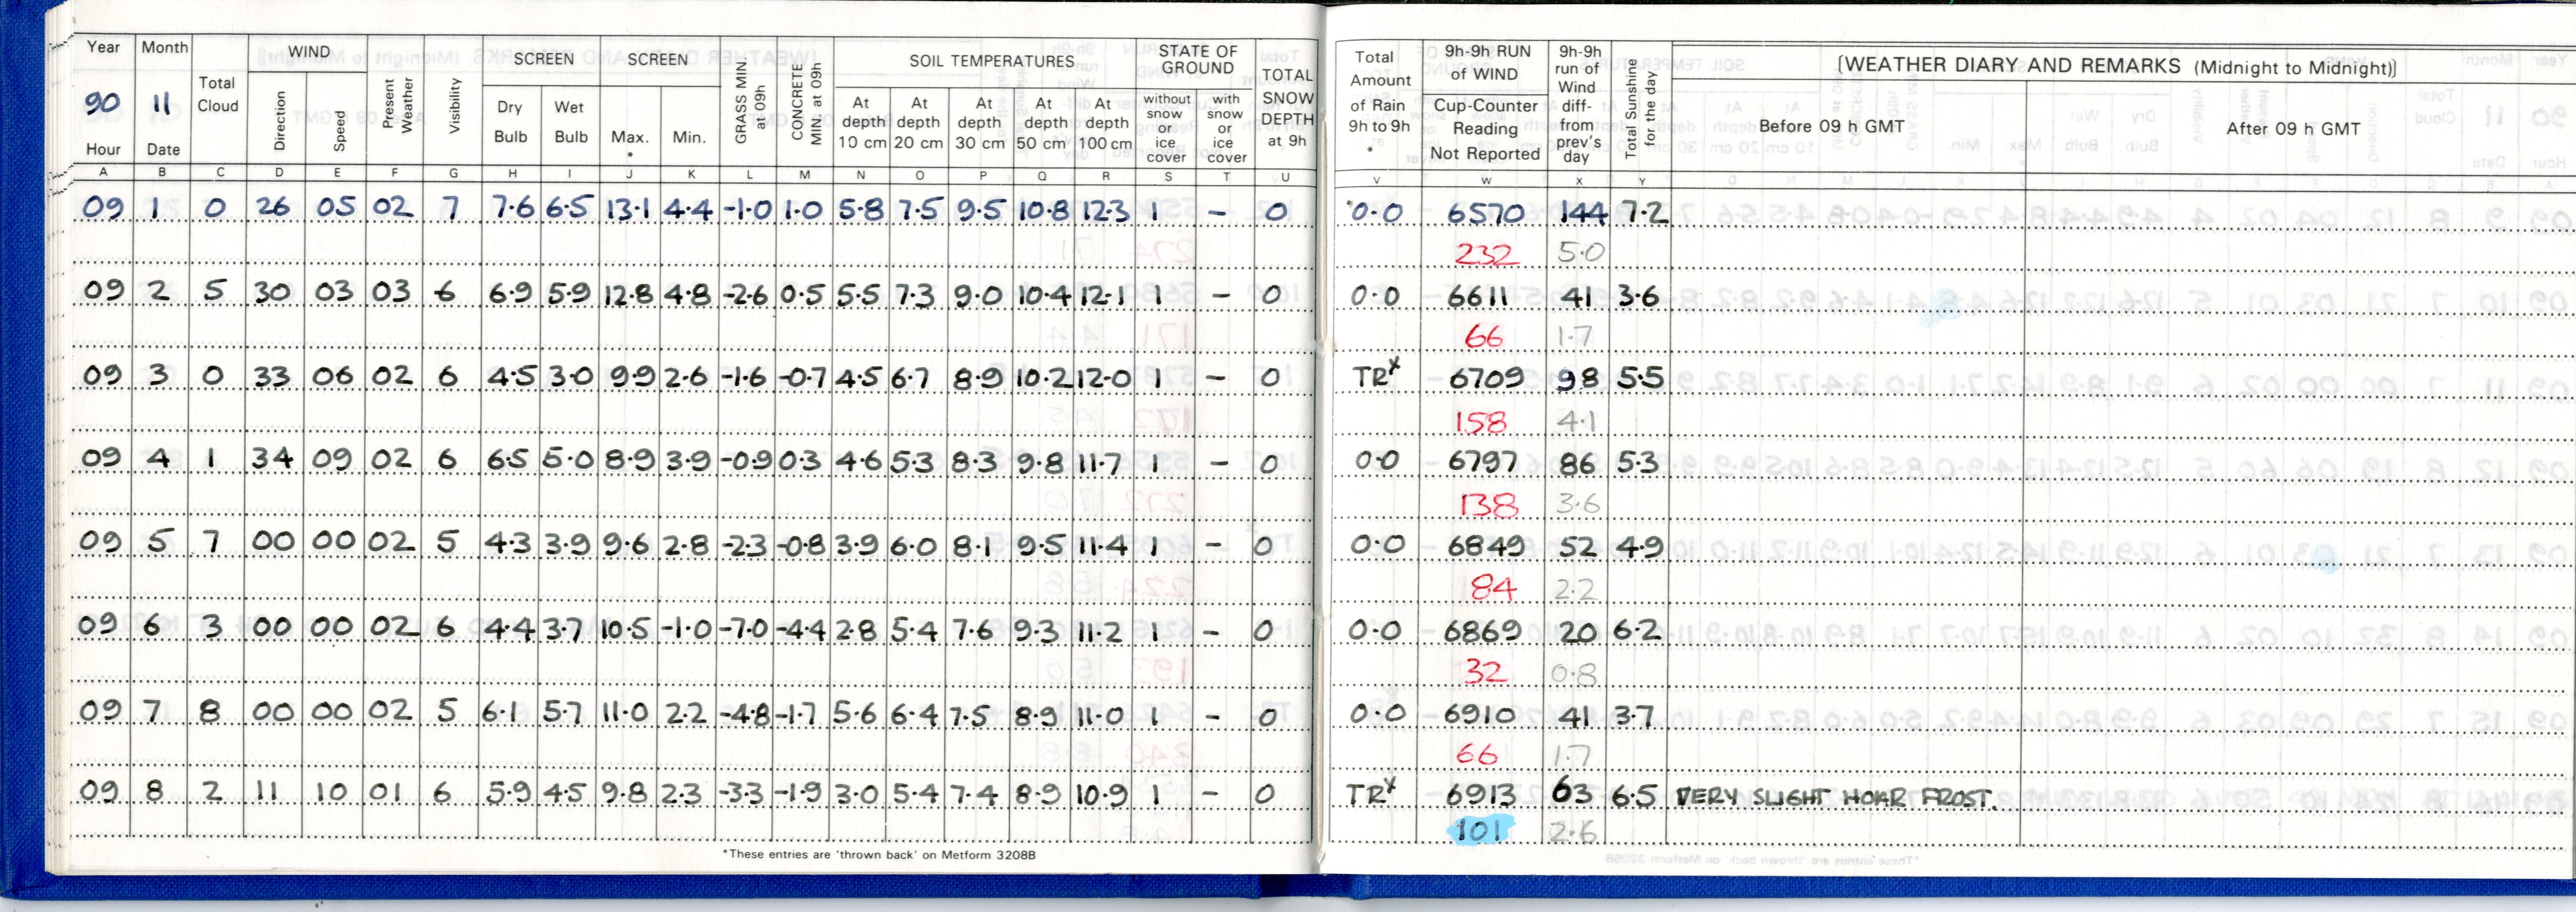 Year Month Total Cloud WIND Present Weather Visibility SCREEN SCREEN GRASS MIN at 09h CONCRETE MIN. at 09h SOIL TEMPERATURES STATE OF GROUND TOTAL SNOW DEPTH at 9h Total Amount of Rain 9h to 9h * 9h-9h RUN of WIND 9h-9h run of Wind diff- from prev's day Total Sunshine for the day [WEATHER DIARY AND REMARKS (Midnight to Midnight)]
90 11 Direction Speed Dry Bulb Wet Bulb Max. * Min. At depth 10 cm At depth 20 cm At depth 30 cm At depth 50 cm At depth 100 cm without snow or ice cover with snow or ice cover Cup-Counter Reading Not Reported Before 09 h GMT After 09 h GMT
Hour Date
A B C D E F G H I J K L M N O P Q R S T U V W X Y
09 1 0 26 05 02 7 7.6 6.5 13.1 4.4 -1.0 1.0 5.8 7.5 9.5 10.8 12.3 1 - 0 0.0 6570 144 7.2
232 5.0
09 2 5 30 03 03 6 6.9 5.9 12.8 4.8 -2.6 0.5 5.5 7.3 9.0 10.4 12.1 1 - 0 0.0 6611 41 3.6
66 1.7
09 3 0 33 06 02 6 4.5 3.0 9.9 2.6 -1.6 -0.7 4.5 6.7 8.9 10.2 12.0 1 - 0 TRx 6709 98 5.5
158 4.1
09 4 1 34 09 02 6 6.5 5.0 8.9 3.9 -0.9 0.3 4.6 5.3 8.3 9.8 11.7 1 - 0 0.0 6797 86 5.3
138 3.6
09 5 7 00 00 02 5 4.3 3.9 9.6 2.8 -2.3 -0.8 3.9 6.0 8.1 9.5 11.4 1 - 0 0.0 6849 52 4.9
84 2.2
09 6 3 00 00 02 6 4.4 3.7 10.5 -1.0 -7.0 -4.4 2.8 5.4 7.6 9.3 11.2 1 - 0 0.0 6869 20 6.2
32 0.8
09 7 8 00 00 02 5 6.1 5.7 11.0 2.2 -4.8 -1.7 5.6 6.4 7.5 8.9 11.0 1 - 0 0.0 6910 41 3.7
66 1.7
09 8 2 11 10 01 6 5.9 4.5 9.8 2.3 -3.3 -1.9 3.0 5.4 7.4 8.9 10.9 1 - 0 TRx 6913 63 6.5 VERY SLIGHT HOAR FROST.
101 2.6
*These entries are 'thrown back' on Metform 3208B